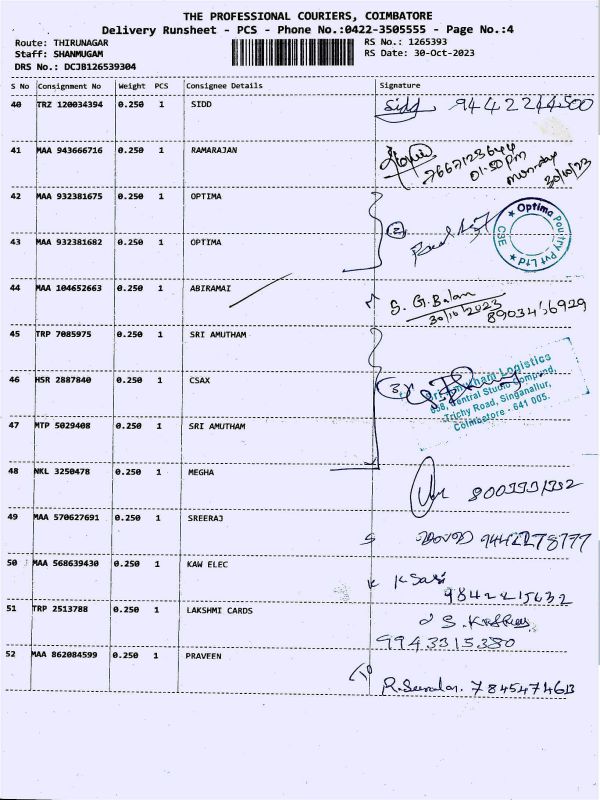 THE PROFESSIONAL COURIERS, COIMBATORE
Delivery Runsheet - PCS - Phone No.:0422-3505555 - Page No.:4
Route: THIRUNAGAR RS No.: 1265393
Staff: SHANMUGAM RS Date: 30-Oct-2023
DRS No.: DCJB126539304
S No Consignment No Weight PCS Consignee Details Signature
40 TRZ 120034394 0.250 1 SIDD Sidd 9442244500
41 MAA 943666716 0.250 1 RAMARAJAN
7667123644
01:50 Pm
Monday
30/10/23
42 MAA 932381675 0.250 1 OPTIMA
2
Optima Poultry Pvt Ltd
CBE
43 MAA 932381682 0.250 1 OPTIMA
44 MAA 104652663 0.250 1 ABIRAMAI S. G. Balan
30/10/2023 8903456929
45 TRP 7085975 0.250 1 SRI AMUTHAM
46 HSR 2887840 0.250 1 CSAX
3
Sri Amutham Logistics
698, Central Studio Compound,
Trichy Road, Singanallur,
Coimbatore - 641 005.
47 MTP 5029408 0.250 1 SRI AMUTHAM
48 NKL 3250478 0.250 1 MEGHA
49 MAA 570627691 0.250 1 SREERAJ 9442278777
50 MAA 568639430 0.250 1 KAW ELEC K Sasi
9842215632
51 TRP 2513788 0.250 1 LAKSHMI CARDS
9943315380
52 MAA 862084599 0.250 1 PRAVEEN